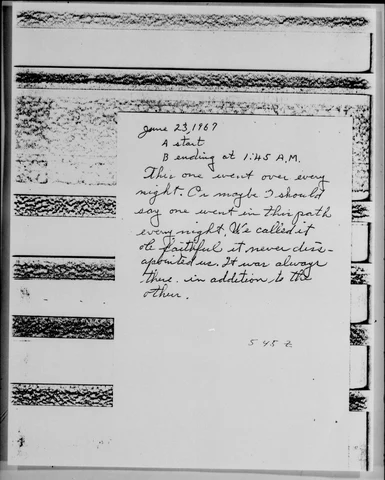 June 23, 1967
A start
B ending at 1:45 A.M.
This one went over every
night. Or maybe I should
say one went in this path
every night. We called it
ole faithful it never dis-
apointed us. It was always
there. in addetion to the
other.
545 Z